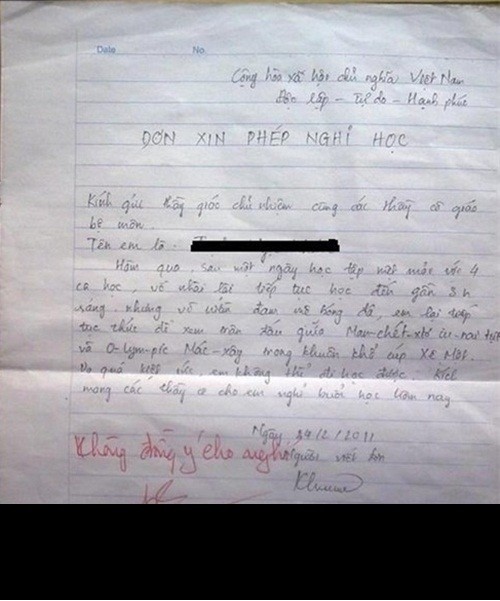 Date No.
Cộng hòa xã hội chủ nghĩa Việt Nam
Độc lập - Tự do - Hạnh phúc
ĐƠN XIN PHÉP NGHỈ HỌC
Kính gửi thầy giáo chủ nhiệm cùng các thầy cô giáo
bộ môn.
Tên em là:
Hôm qua, sau một ngày học tập mệt mỏi với 4
ca học, về nhà lại tiếp tục học đến gần 3h
sáng, nhưng vì niềm đam mê bóng đá, em lại tiếp
tục thức để xem trận đấu giữa Man-chét-xtơ iu-nai-tựt
và O-lym-píc Mác-xây trong khuôn khổ cúp
Do quá kiệt sức, em không thể đi học được. Kính
mong các thầy cô cho em nghỉ buổi học hôm nay
Ngày 24/2/2011
Không đồng ý cho nghỉ
Người viết đơn